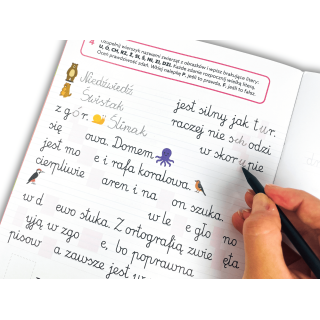 4 Uzupełnij wierszyk nazwami zwierząt z obrazków i wpisz brakujące litery:
U, Ó, CH, RZ, Ż, SI, Ś, NI, ZI, DZI. Każde zdanie rozpocznij wielką literą.
Oceń prawdziwość zdań. Wklej nalepkę P, jeśli to prawda, F, jeśli to fałsz.
Niedźwiedź jest silny jak tur.
Świstak raczej nie schodzi
z gór. Ślinak w skorupie
się owa. Domem
jest mo e i rafa koralowa.
cierpliwie aren i na on szuka.
w d ewo stuka. Z ortografią zwie ęta
w le e gło no
yją w zgo e, bo poprawna
pisow a zawsze jest w